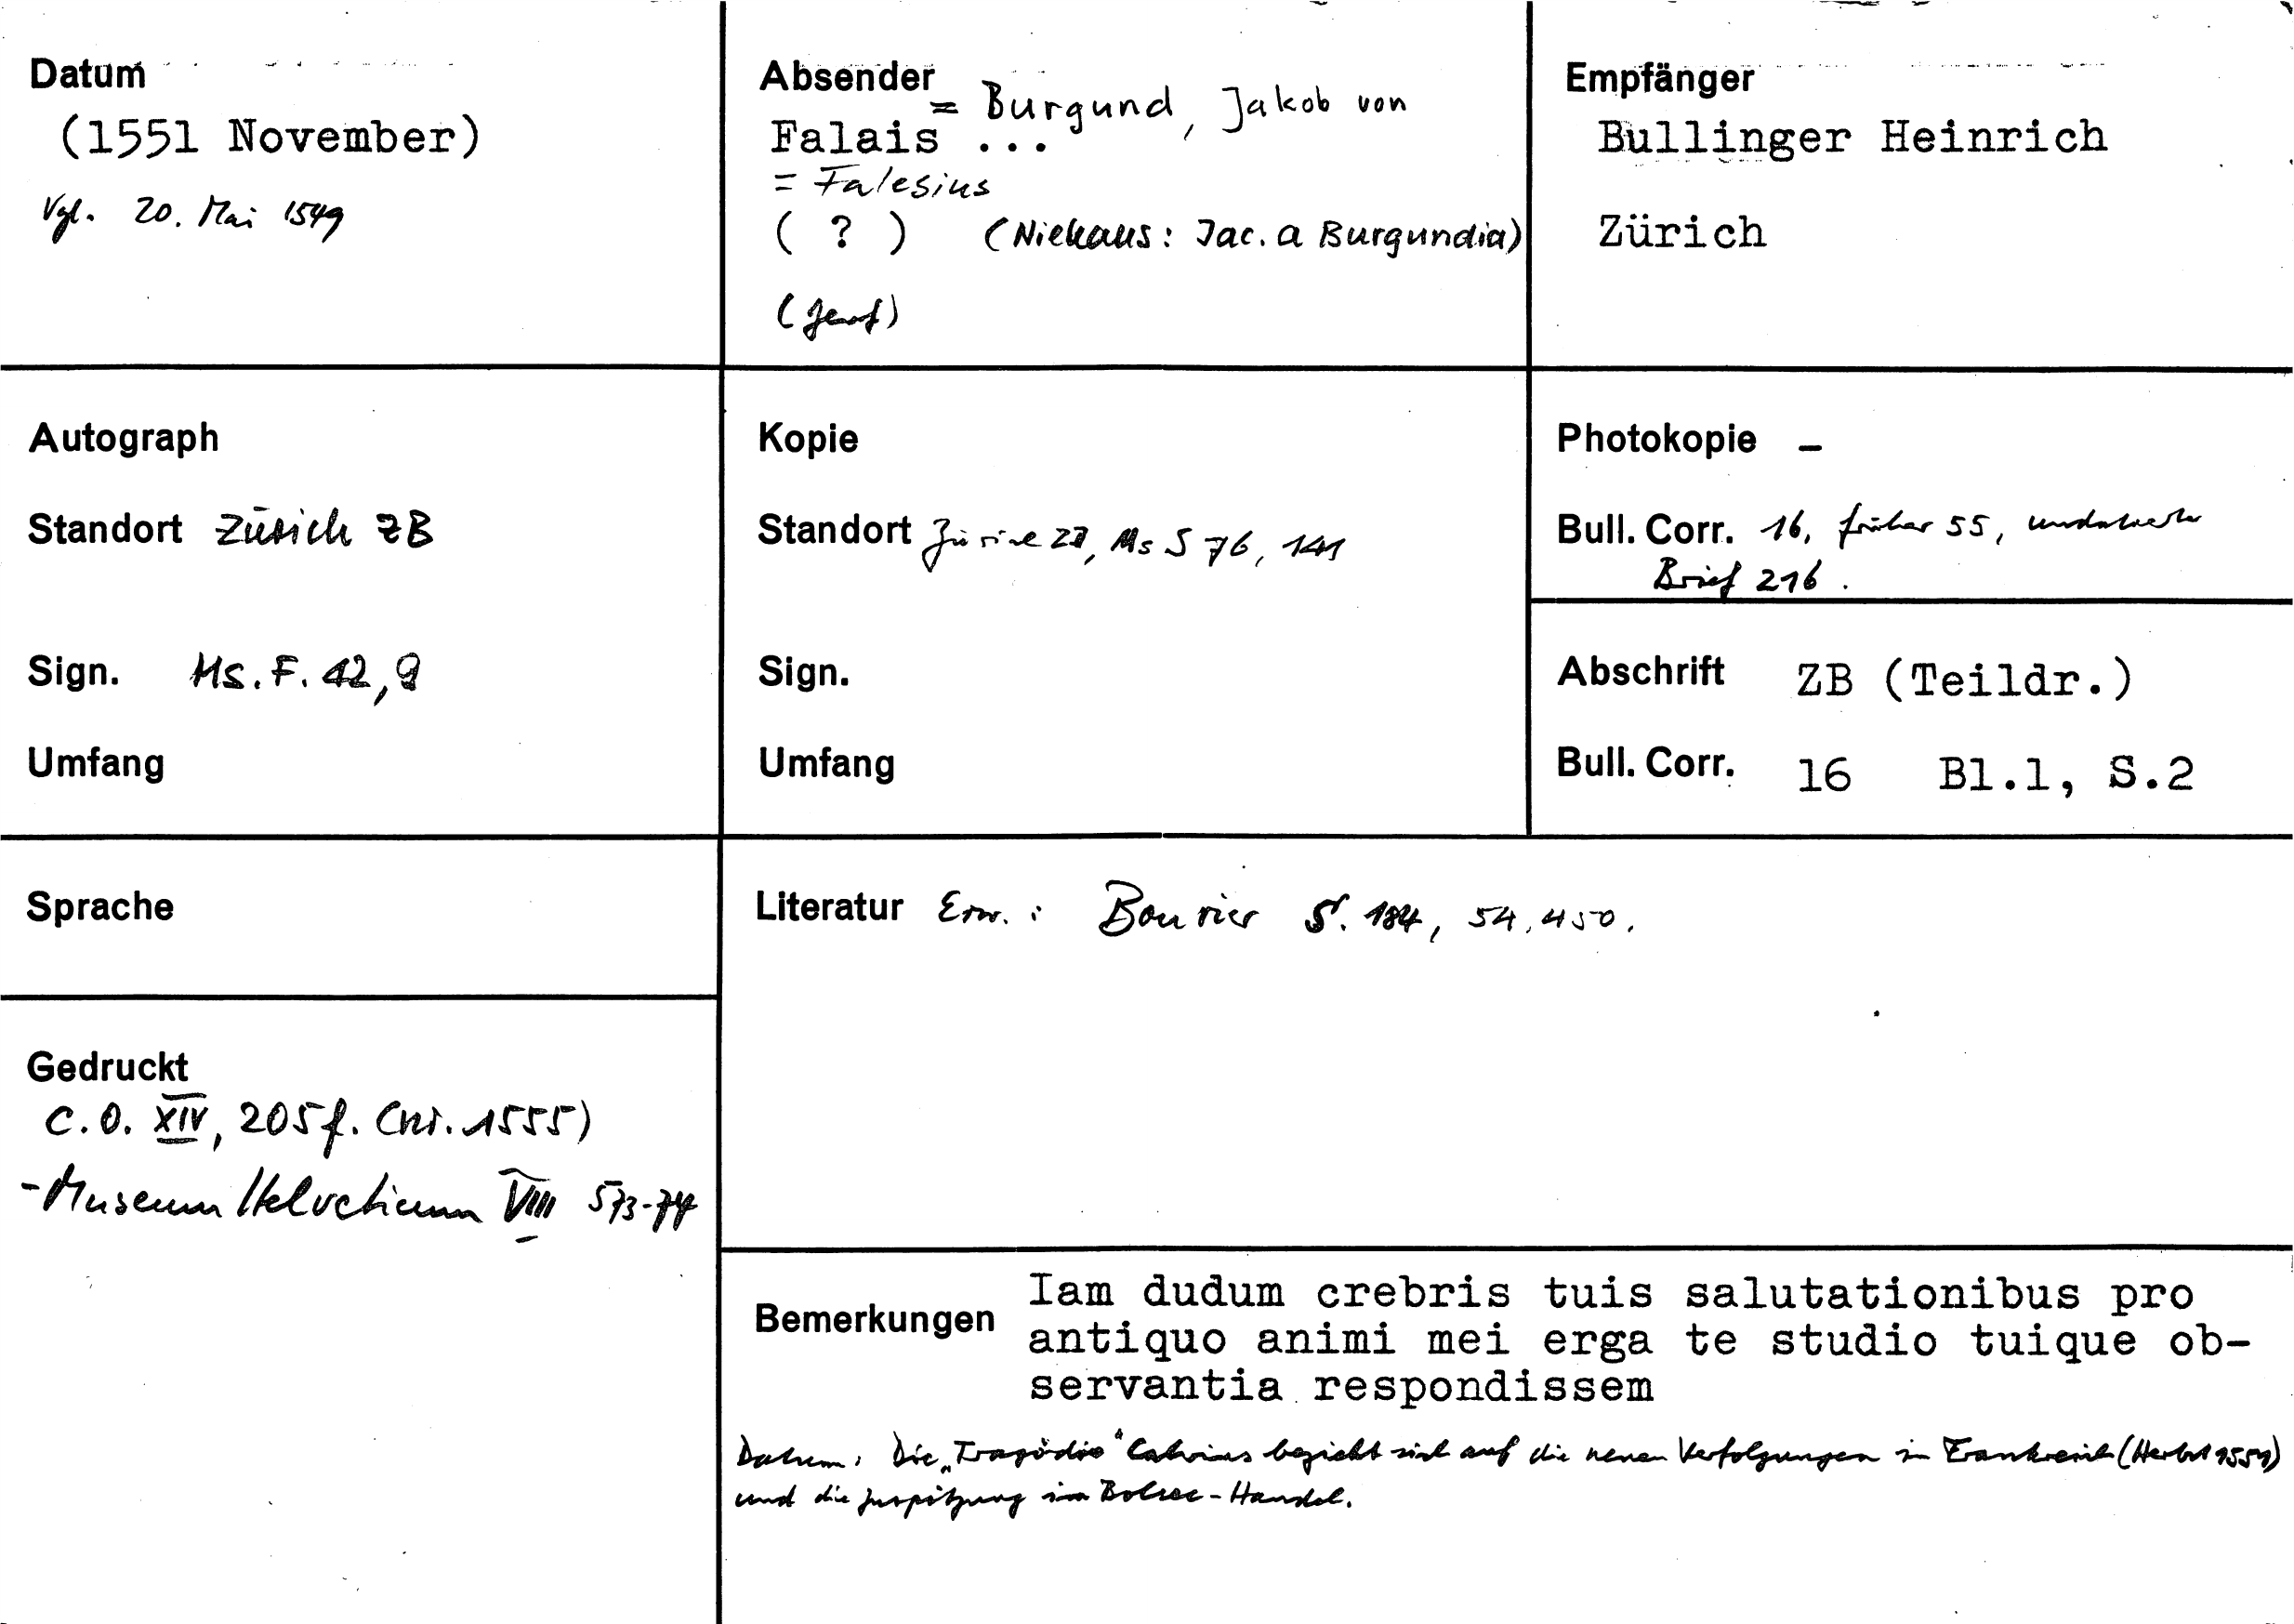 Datum
(1551 November)
Vgl. 20. Mai 1549
Absender
= Burgund, Jakob von
Falais ...
= Falesius
( ? ) (Niehaus: Jac. a Burgundia)
(Genf)
Empfänger
Bullinger Heinrich
Zürich
Autograph
Standort Zürich ZB
Sign. Ms. F. 42, 9
Umfang
Kopie
Standort Zürich ZB, Ms S 76, 141
Sign.
Umfang
Photokopie –
Bull. Corr. 16, früher 55, undatierte
Brief 216.
Abschrift ZB (Teildr.)
Bull. Corr. 16 Bl.1, S.2
Sprache
Literatur Erw.: Bouvier S. 184, 54, 450.
Gedruckt
C.O. XIV, 205 f. (nr. 1555)
- Museum Helveticum VIII 573-74
Bemerkungen
Iam dudum crebris tuis salutationibus pro
antiquo animi mei erga te studio tuique ob-
servantia respondissem
Datum: Die „Tragödie“ Calvins bezieht sich auf die neuen Verfolgungen in Frankreich (Herbst 1551)
und die Zuspitzung im Bolsec-Handel.